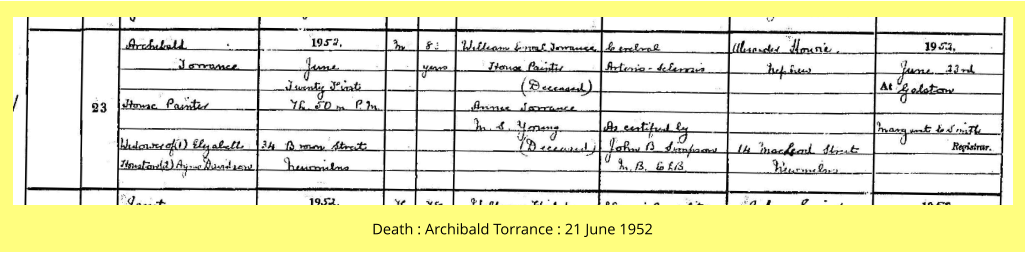 23
Archibald
Torrance
House Painter
Widower of (1) Elizabeth
Houston (2) Agnes Davidson
1952.
June
Twenty First
7h. 50m P.M.
34 Brown Street
Newmilns
M
years
William Torrance
House Painter
(Deceased)
Annie Torrance
M. S. Young
(Deceased)
Cerebral
Arterio-sclerosis
As certified by
John B Simpson
M.B. Ch.B
Alexander Howie.
Nephew
14 Macleod Street
Newmilns
1952.
June 23rd
At Galston
Margaret Smith
Registrar.
1952.
Death : Archibald Torrance : 21 June 1952